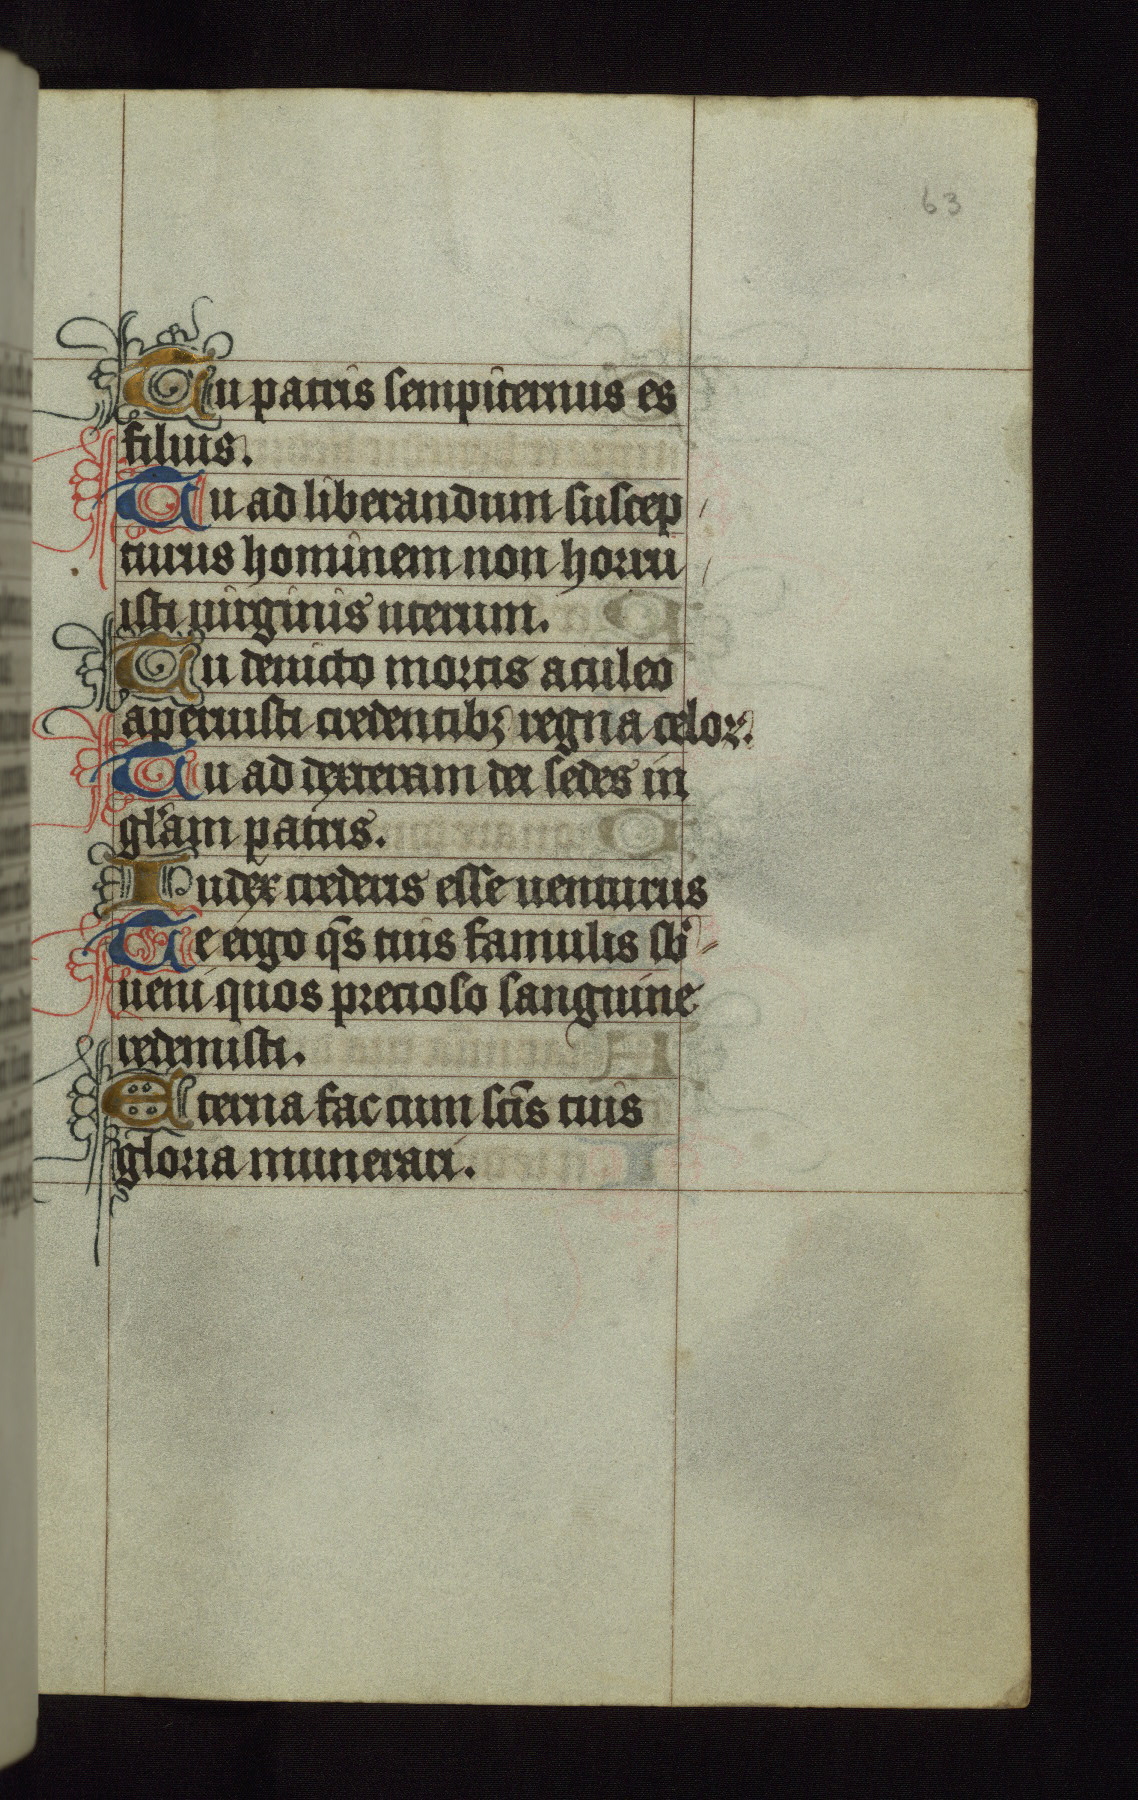 63
Tu patris sempiternus es
filius.
Tu ad liberandum suscep
turus hominem non horru
isti uirginis uterum.
Tu deuicto mortis aculeo
aperuisti credentibꝫ regna celoꝝ.
Tu ad dexteram dei sedes in
gl̄am patris.
Iudex crederis esse uenturus
Te ergo q̄s tuis famulis sb'
ueni quos precioso sanguine
redemisti.
Eterna fac cum sc̄is tuis
gloria munerari.